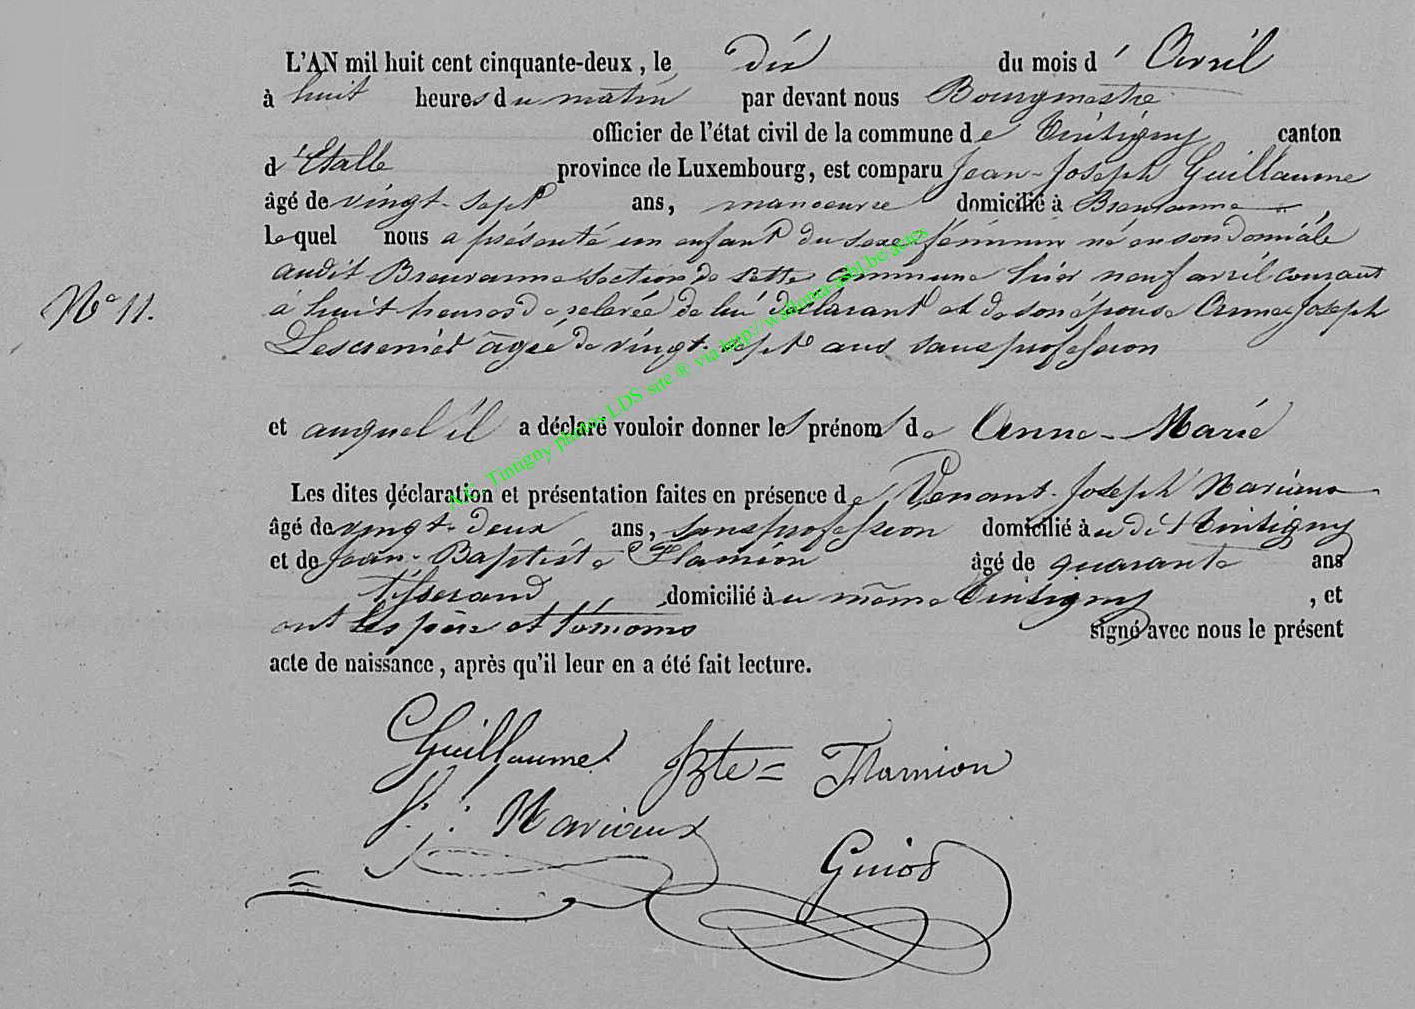 L'AN mil huit cent cinquante-deux, le dix du mois d'Avril
à huit heures du matin par devant nous Bourgmestre
officier de l'état civil de la commune de Tintigny canton
d'Etalle province de Luxembourg, est comparu Jean-Joseph Guillaume
âgé de vingt-sept ans, manoeuvre domicilié à Breuvanne
lequel nous a présenté un enfant du sexe féminin né en son domicile
audit Breuvanne section de cette commune hier neuf avril courant
No 11.
à huit heures de relevée de lui déclarant et de son épouse Anne Joseph
Lescrenier âgée de vingt-sept ans sans profession
et auquel il a déclaré vouloir donner les prénoms de Anne-Marie
Les dites déclaration et présentation faites en présence de Joseph
âgé de vingt-deux ans, sans profession domicilié à udit Tintigny
et de Jean-Baptiste Flamion âgé de quarante ans
tisserand, domicilié à u même Tintigny, et
ont les père et témoins signé avec nous le présent
acte de naissance, après qu'il leur en a été fait lecture.
Guillaume JBte = Flamion
Guiot
A.G. Tintigny photos LDS site ® via http://wallonia-asbl.be/actes